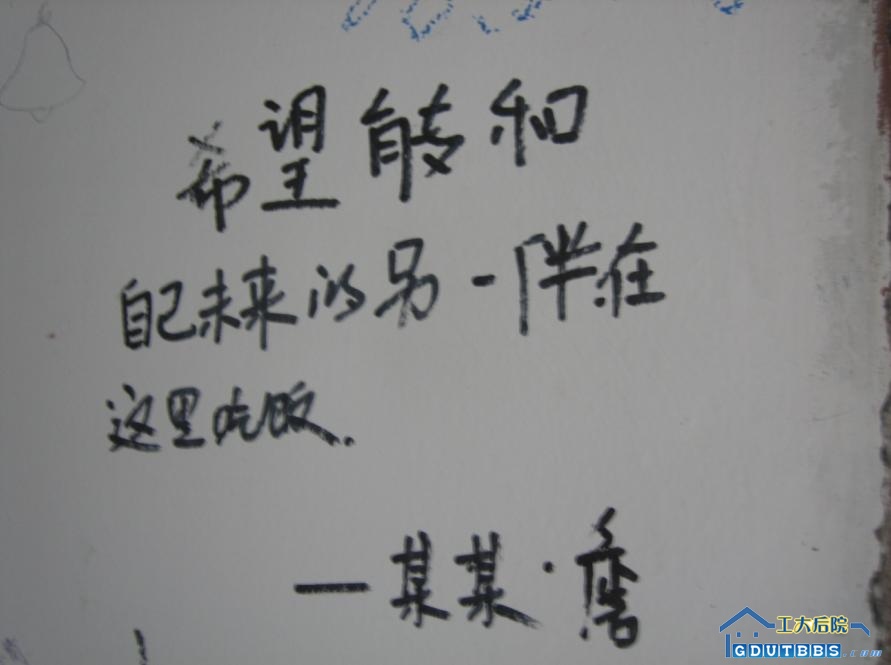 希望能和
自己未来的另一伴在
这里吃饭.
—某某·詹
工大后院
GDUTBBS.com